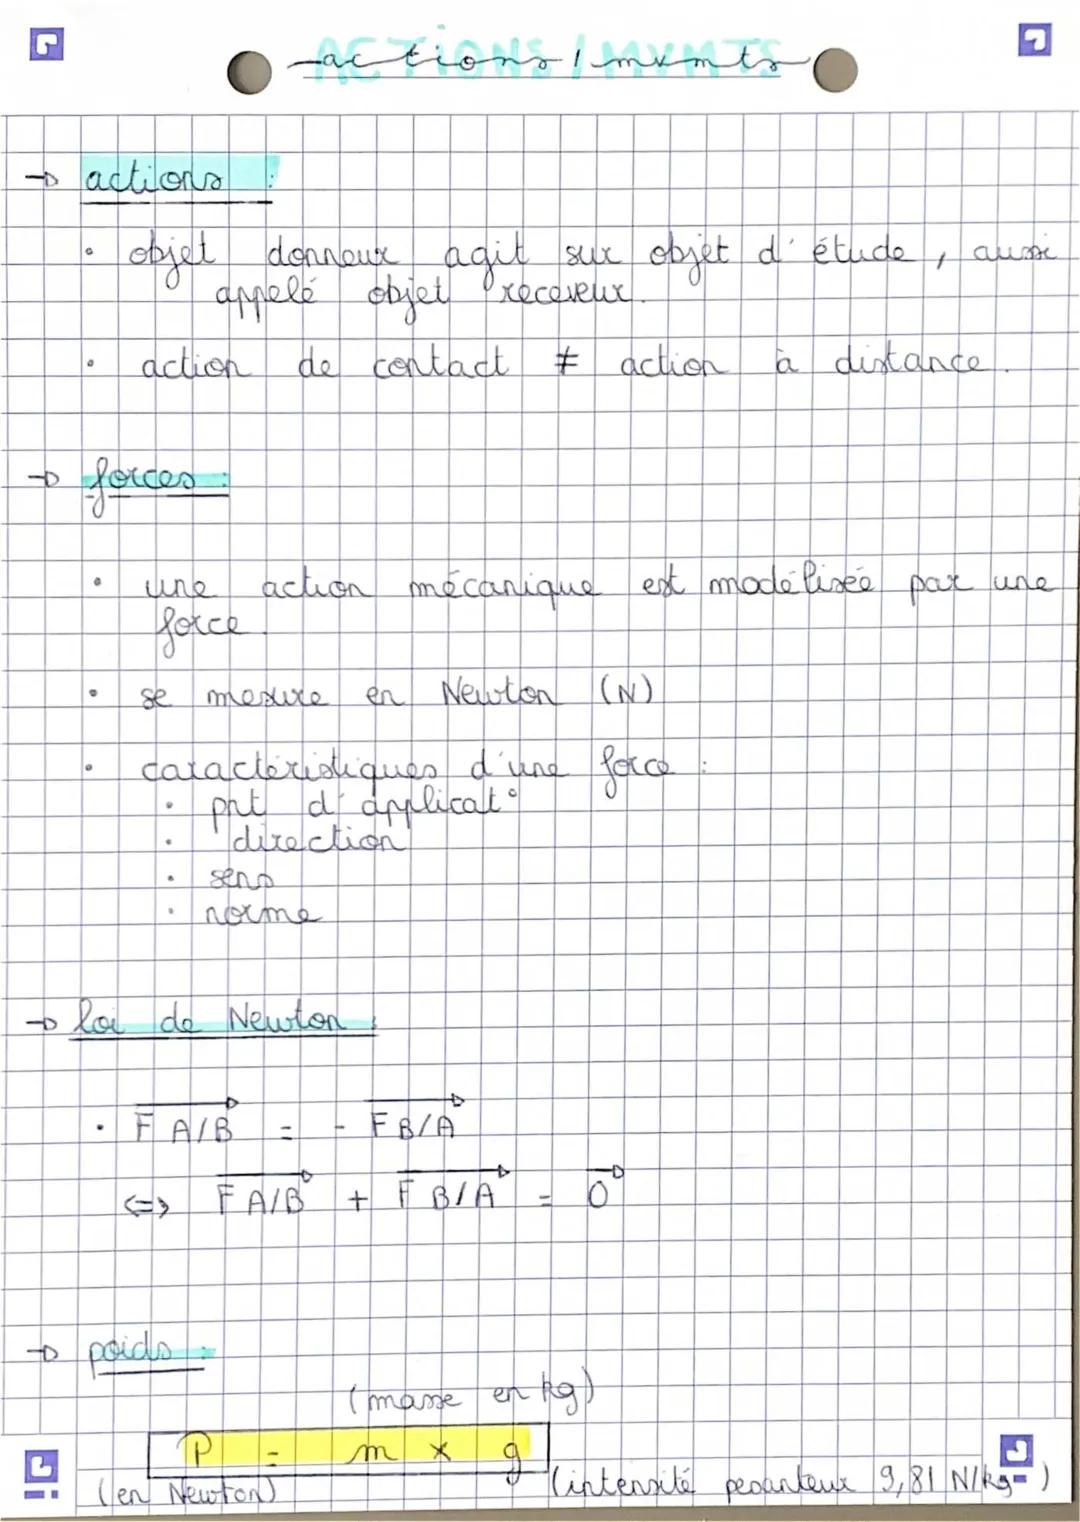 ACTIONS / MVMTS
actions / mvmts
→ actions :
• objet donneur agit sur objet d'étude, aussi
appelé objet receveur.
• action de contact ≠ action à distance.
→ forces :
• une action mécanique est modélisée par une
force.
• se mesure en Newton (N)
• caractéristiques d'une force :
• pnt d'applicat°
• direction
• sens
• norme
→ loi de Newton :
• F A/B = - F B/A
<=> F A/B + F B/A = 0
→ poids :
(masse en kg)
P = m × g
(en Newton) (intensité pesanteur 9,81 N/kg)